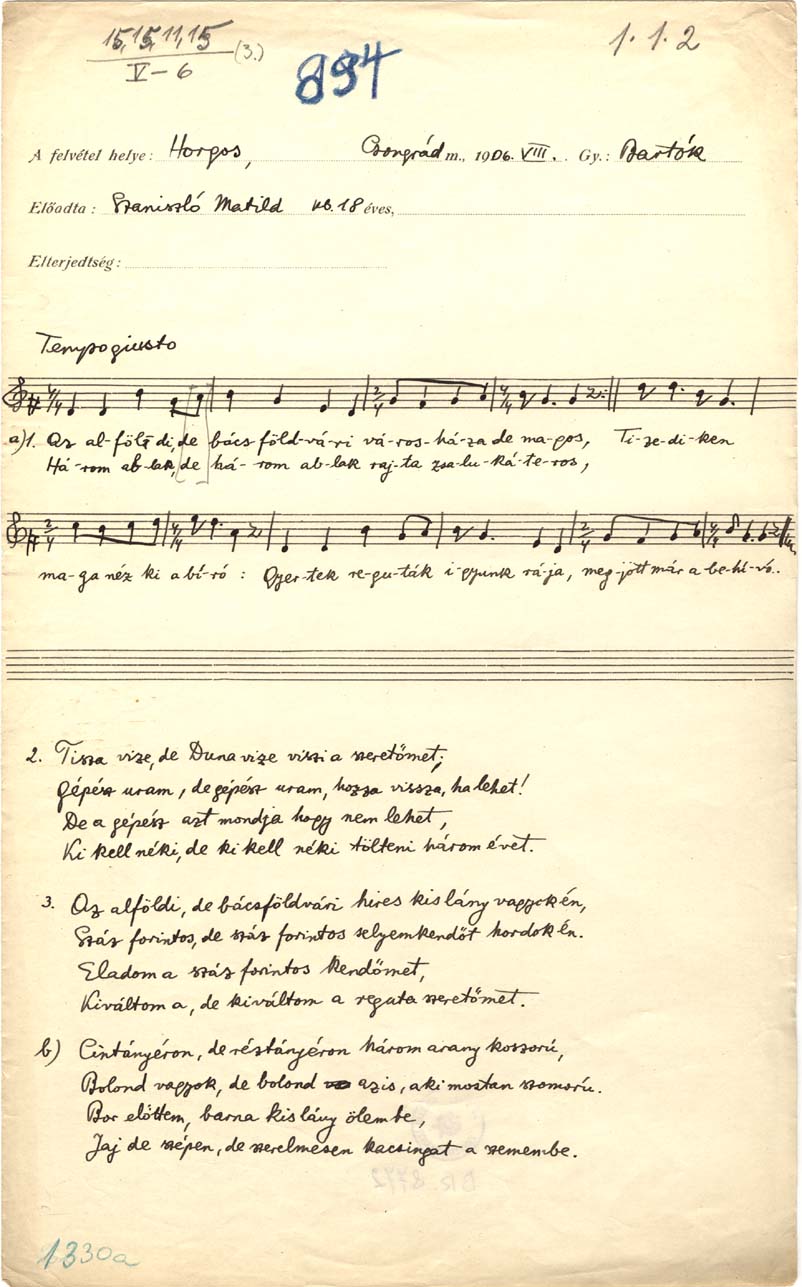 15, 15, 11, 15
V - 6 (3.)
894
1. 1. 2
A felvétel helye: Horgos, Csongrád m., 1906. VIII. Gy.: Bartók
Előadta: Szaniszló Matild kb. 18 éves,
Elterjedtség:
Tempo giusto
a) 1. Az al-föl-di, de bács föld-vá-ri vá-ros-há-za de ma-gos, Ti-ze-di-ken
Há-rom ab-lak, de há-rom ab-lak raj-ta zsa-lu-ká-te-ros,
ma-ga néz ki a bí-ró: Gyer-tek re-gu-ták i-gyunk rá-ja, meg-jött már a be-hí-vó.
2. Tisza vize, de Duna vize viszi a szeretőmet;
Gépész uram, de gépész uram, hozza vissza, ha lehet!
De a gépész azt mondja hogy nem lehet,
Ki kell néki, de ki kell néki tölteni három évet.
3. Az alföldi, de bácsföldvári hires kis lány vagyok én,
Száz forintos, de száz forintos selyemkendőt hordok én.
Eladom a száz forintos kendőmet,
Kiváltom a, de kiváltom a reguta szeretőmet.
b) Cintányéron, de réztányéron három arany koszorú,
Bolond vagyok, de bolond az is, aki mostan szomorú.
Bor előttem, barna kis lány ölembe,
Jaj de szépen, de szerelmesen kacsingat a szemembe.
1330a